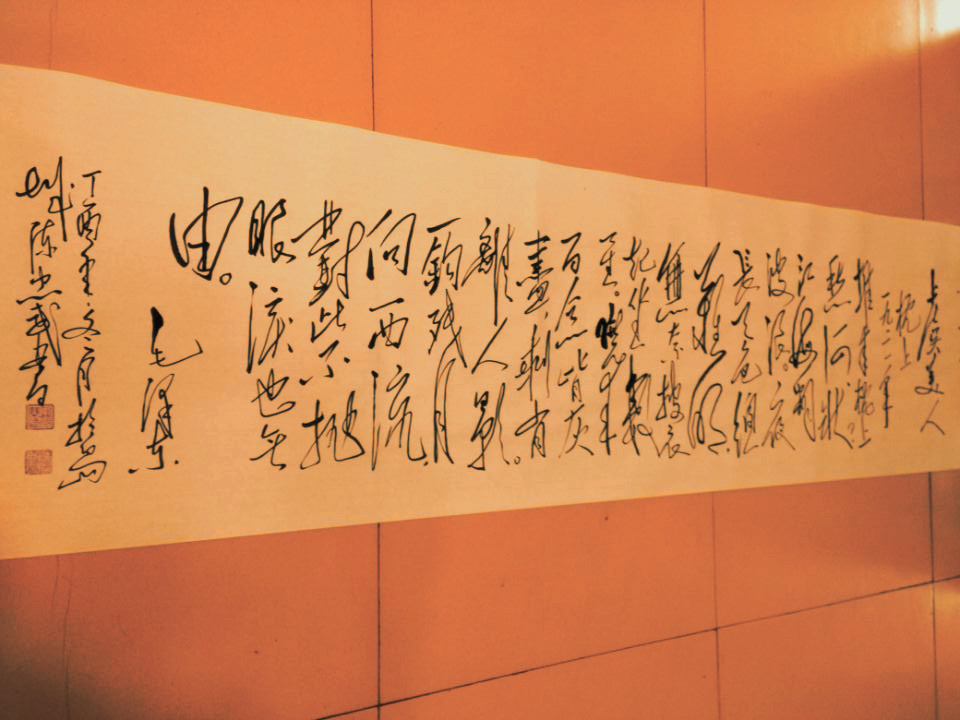 虞美人
枕上
一九二一年
堆来枕上
愁何状
江海翻
波浪。夜
長天色总
难明
無奈披衣
起坐数
星。晓来
百念皆灰
盡,剩有
離人影。
一钩残月
向西流,
對此不抛
眼泪也无
由。
毛泽东
丁酉年冬月於
圳陈忠